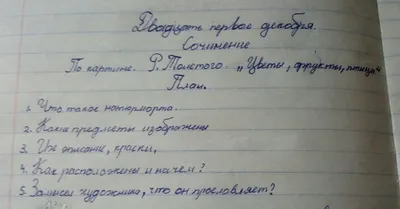 Двадцать первое декабря.
Сочинение
По картине Ф. Толстого „Цветы, фрукты, птица“
План.
1. Что такое натюрморт.
2. Какие предметы изображены
3. Их описание, краски,
4. Как расположены и на чём?
5. Замысел художника, что он прославляет?